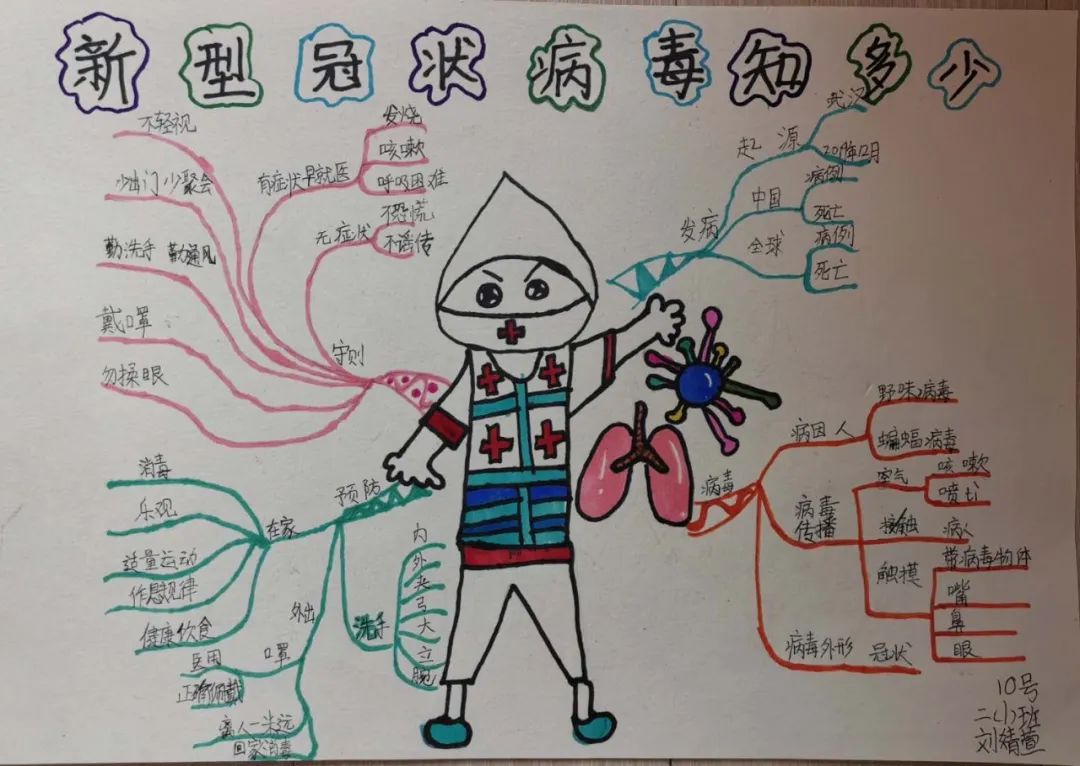 新型冠状病毒知多少
守则
不轻视
少出门 少聚会
勤洗手 勤通风
戴口罩
勿揉眼
有症状早就医
发烧
咳嗽
呼吸困难
无症状
不恐慌
不谣传
发病
起源
武汉
2019年12月
中国
病例
死亡
全球
病例
死亡
预防
在家
消毒
乐观
适量运动
作息规律
健康饮食
外出
口罩
医用
正确佩戴
离人一米远
回家消毒
洗手
内
外
夹
弓
大
立
腕
病毒
病因 人
野味病毒
蝙蝠病毒
病毒
传播
空气
咳嗽
接触
病人
触摸
带病毒物体
嘴
鼻
眼
病毒外形 冠状
10号
二(1)班